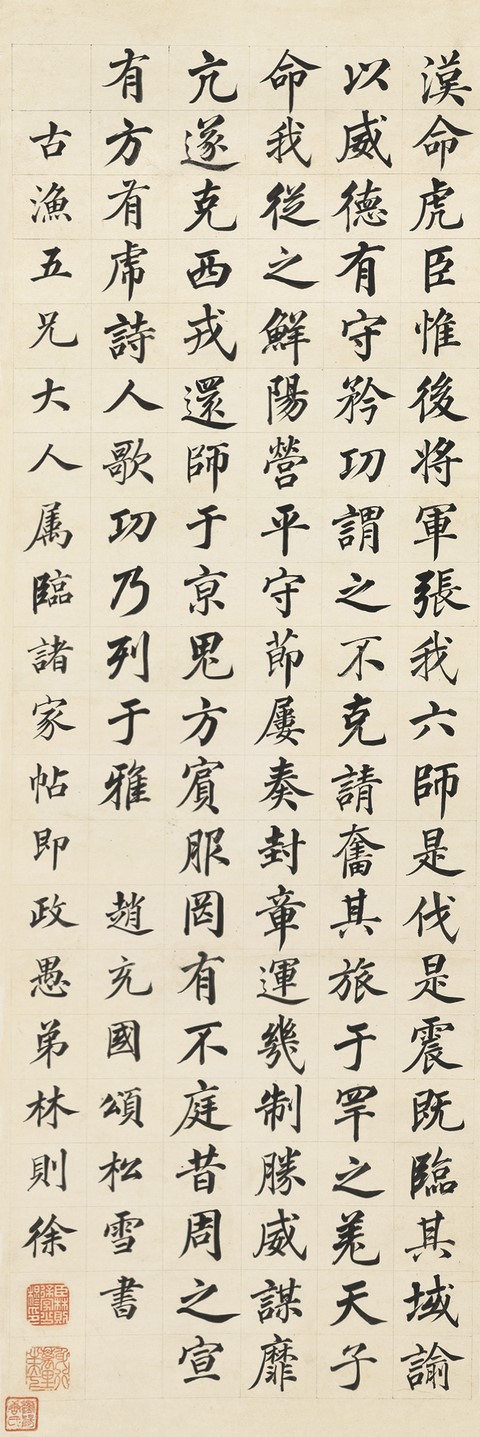 漠命虎臣惟後将軍張我六師是伐是震既臨其域諭
以威德有守矜功謂之不克請奮其旅于罕之羌天子
命我從之鮮陽營平守節屢奏封章運幾制勝威謀靡
亢遂克西戎還師于京鬼方賓服罔有不庭昔周之宣
有方有虎詩人歌功乃列于雅 趙充國頌松雪書
古漁五兄大人属臨諸家帖即政愚弟林則徐